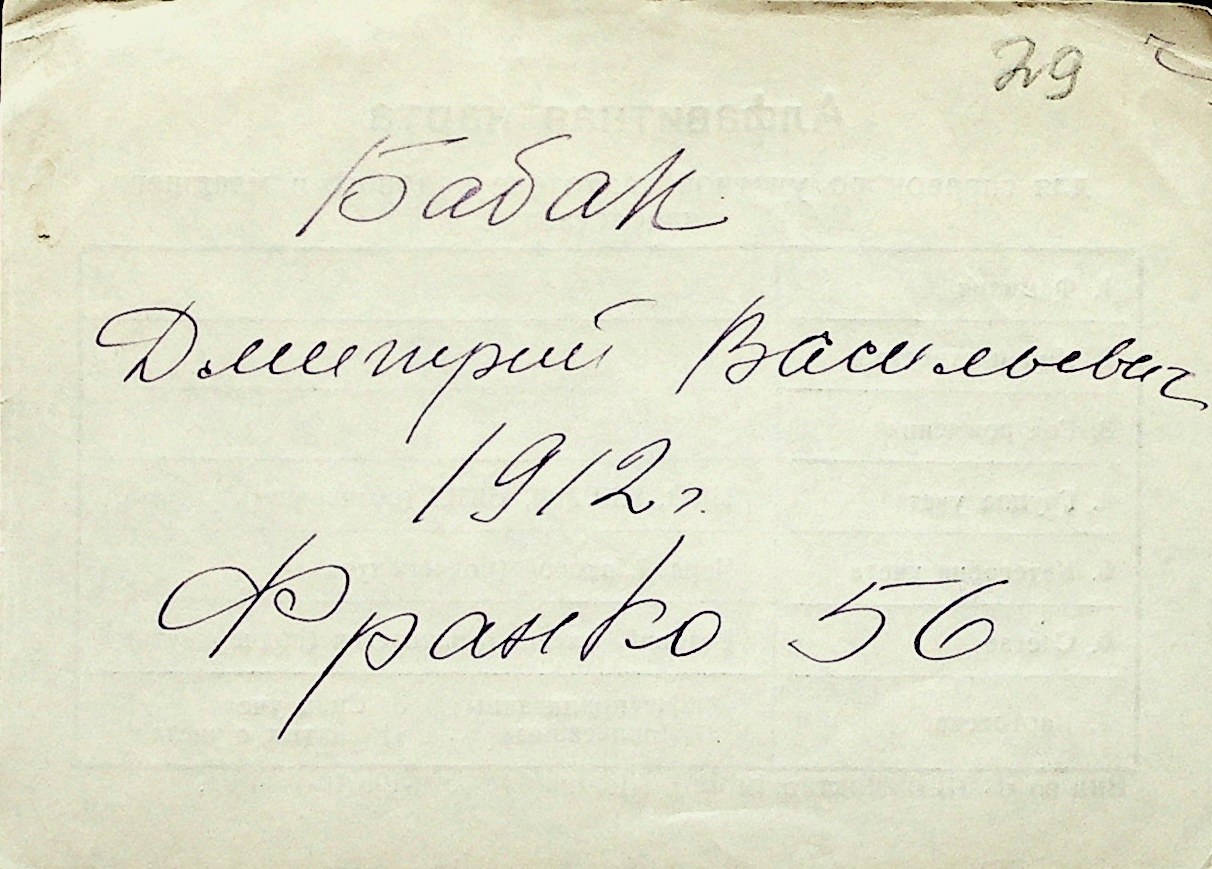 29
Бабак
Дмитрий Васильевич
1912 г.
Франко 56